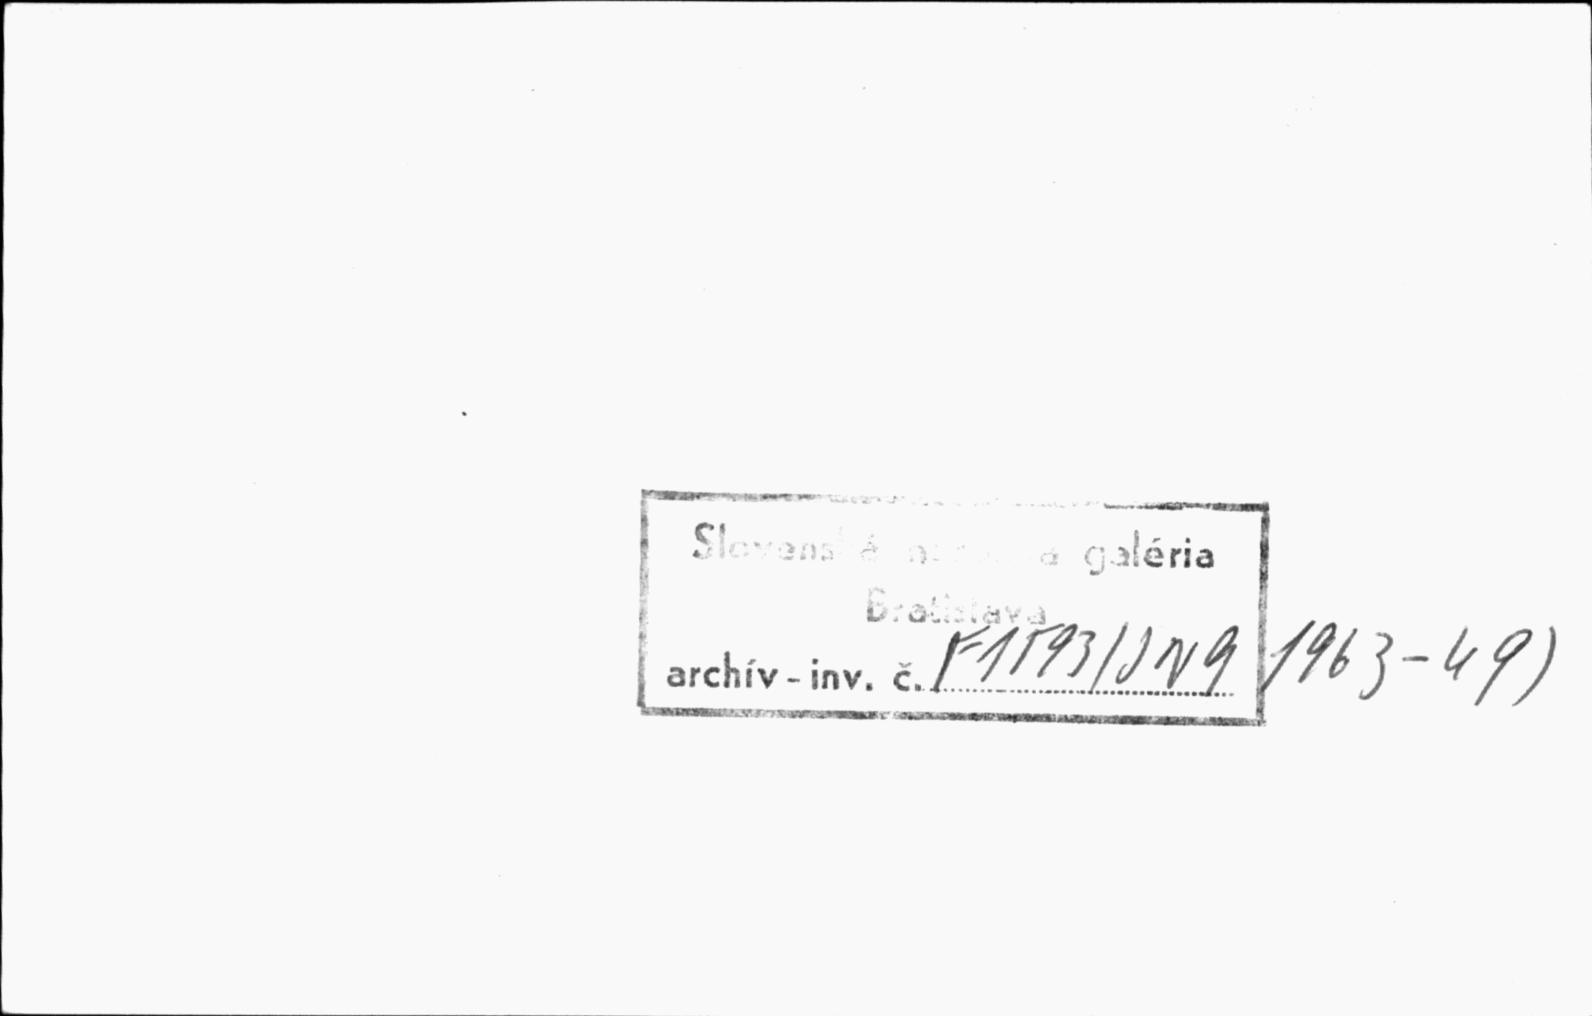 Slovenská národná galéria
Bratislava
archív - inv. č. F1593/SNG 1963-49)